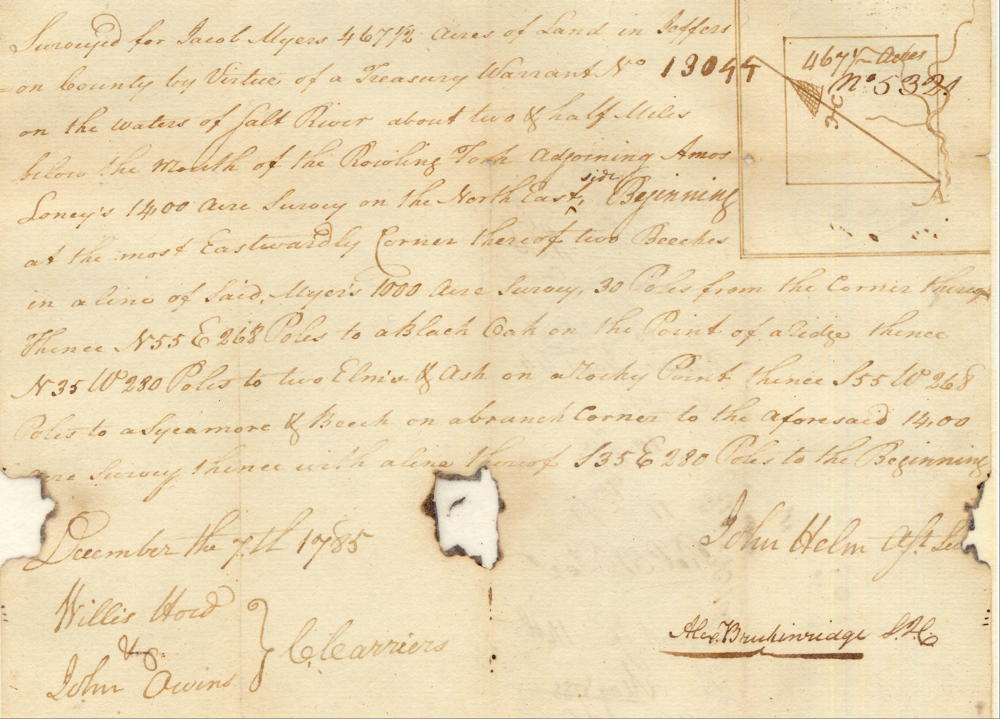 Surveyed for Jacob Myers 467 1/2 Acres of Land in Jeffers
=on County by Virtue of a Treasury Warrant No 13044
on the waters of Salt River about two & half Miles
below the Mouth of the Rowling Fork Adjoining Amos
Loney's 1400 Acre Survey on the North East side, Beginning
at the most Eastwardly Corner thereof two Beeches
in a line of Said, Myer's 1000 Acre Survey, 30 Poles from the Corner thereof
Thence N55E 268 Poles to a Black Oak on the Point of a ridge thence
N35W 280 Poles to two Elm's & Ash on a Rocky Point thence S55W 268
Poles to a Sycamore & Beech on a branch Corner to the Aforesaid 1400
Acre Survey thence with a line thereof S35E 280 Poles to the Beginning
December the 7th 1785
John Helm Asst
Willis Hord
&
John Owins
C Carriers
Alex. Breckinridge S.J.C
467 1/2 Acres
No 5321
A